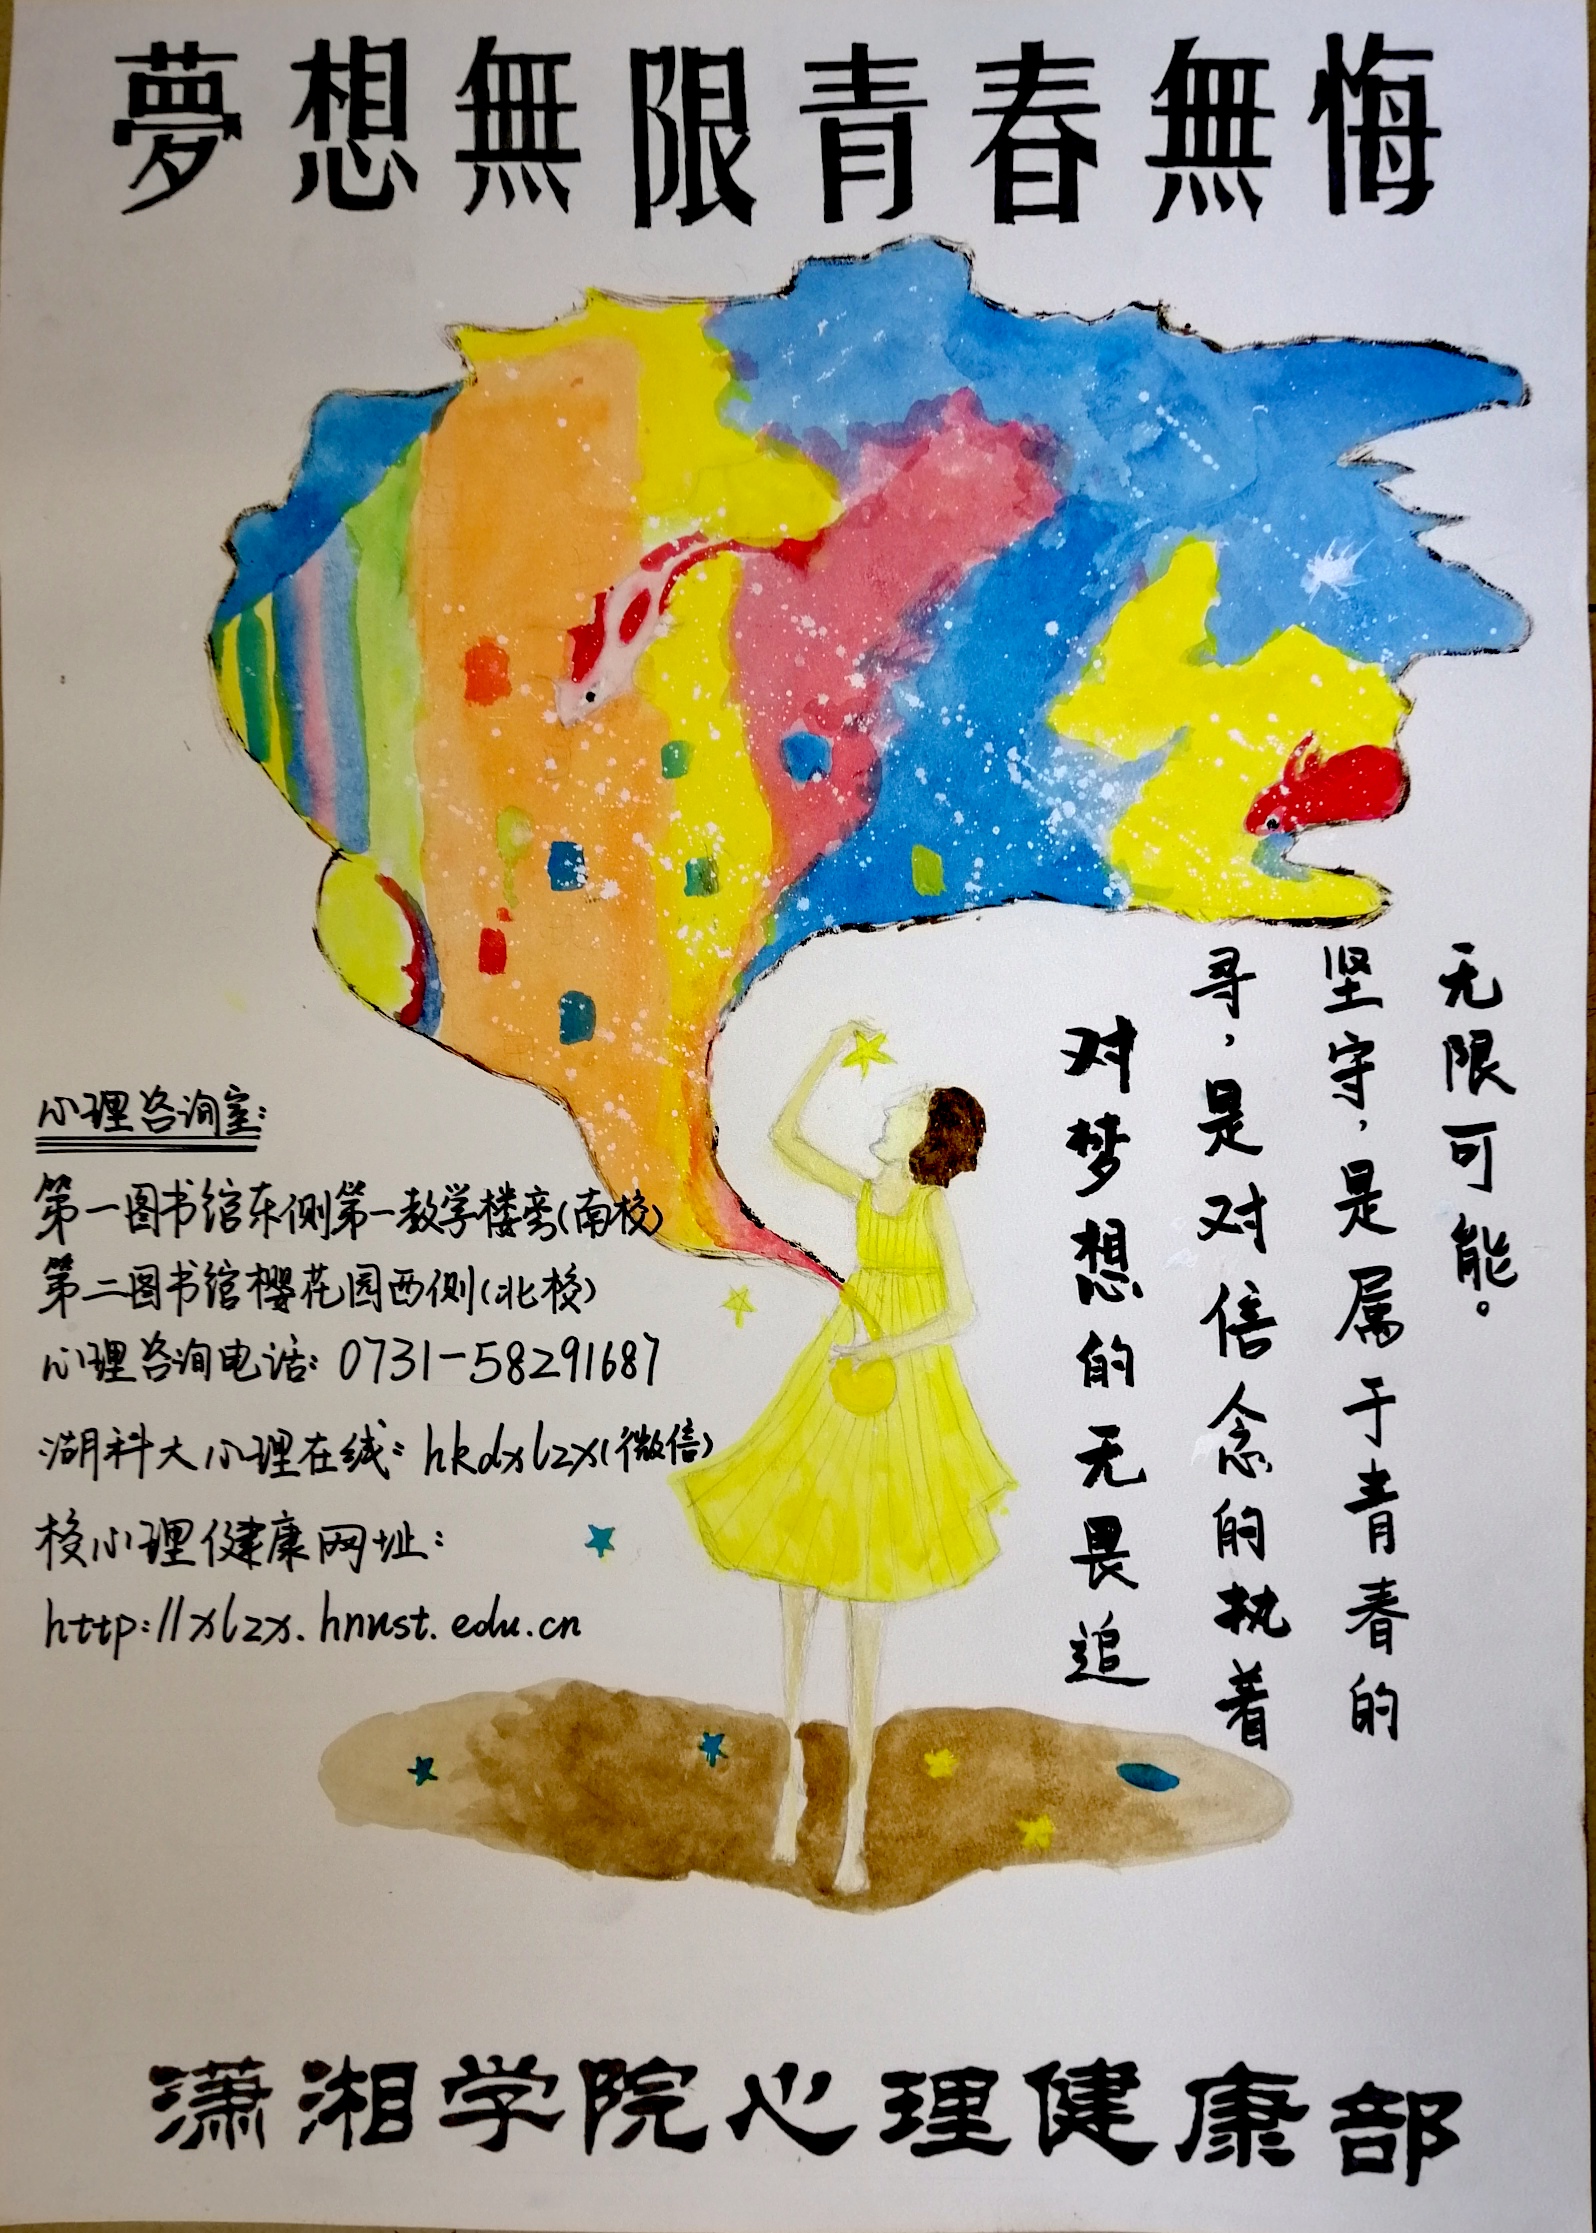 夢想無限青春無悔
对梦想的无畏追
寻，是对信念的执着
坚守，是属于青春的
无限可能。
心理咨询室：
第一图书馆东侧第一教学楼旁(南校)
第二图书馆樱花园西侧(北校)
心理咨询电话：0731-58291687
湖科大心理在线：hkdxlzx(微信)
校心理健康网址：
http://xlzx.hnust.edu.cn
潇湘学院心理健康部